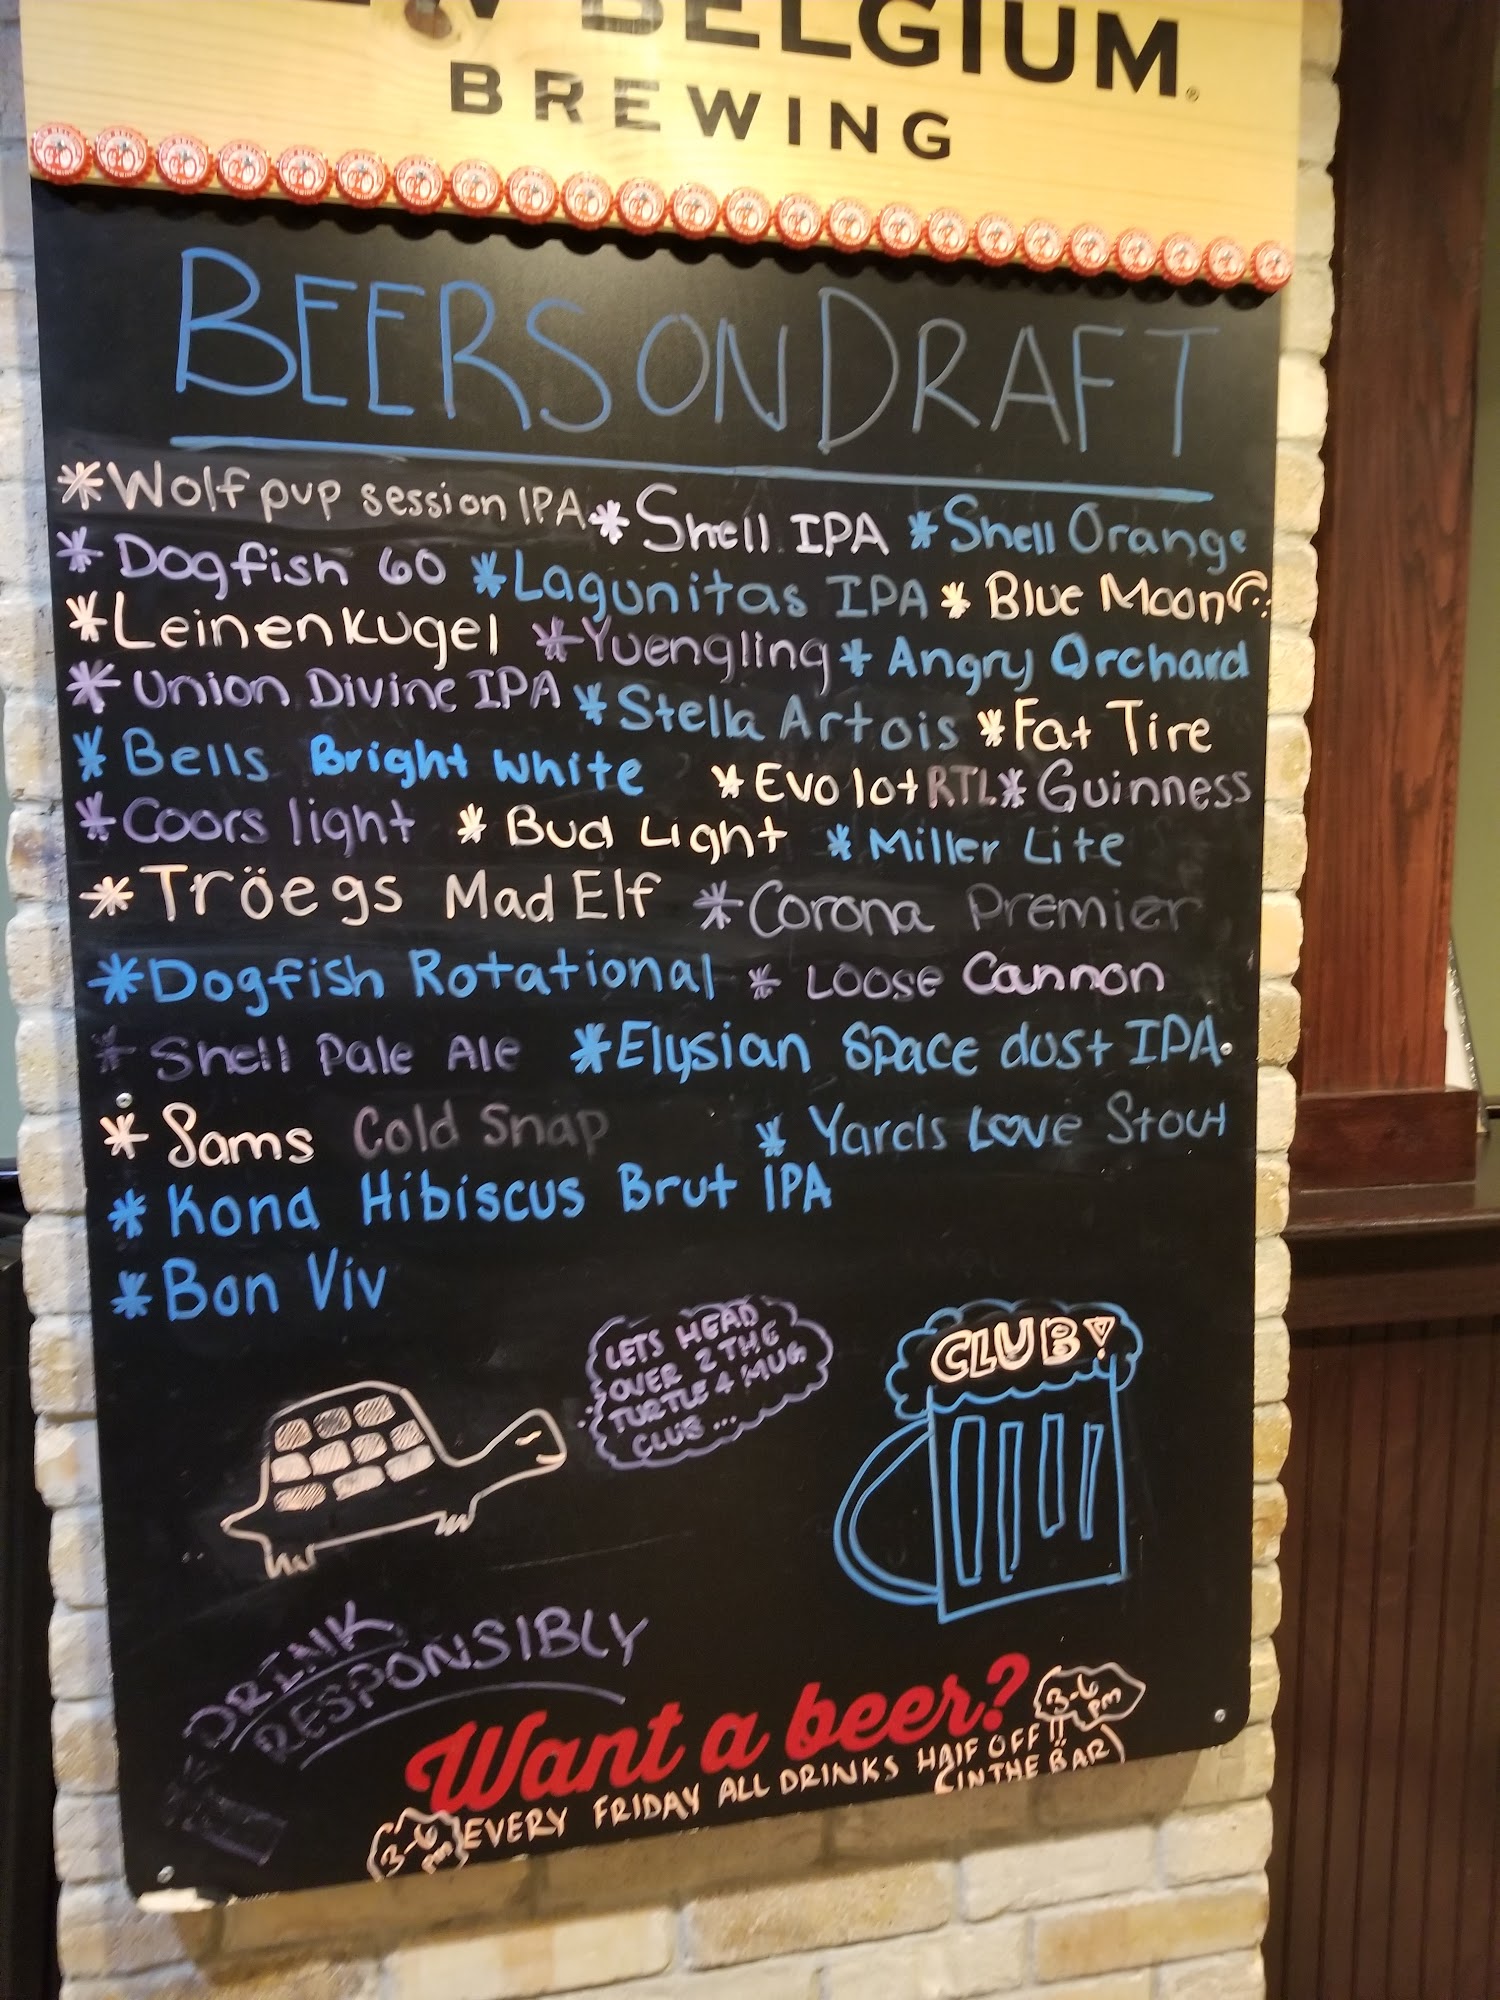 BELGIUM®
BREWING
BEERS ON DRAFT
*Wolf pup session IPA *Shell IPA *Shell Orange
*Dogfish 60 *Lagunitas IPA *Blue Moon
*Leinenkugel *Yuengling *Angry Orchard
*Union Divine IPA *Stella Artois *Fat Tire
*Bells Bright white *Evo lot RTL *Guinness
*Coors light *Bud Light *Miller Lite
*Tröegs Mad Elf *Corona Premier
*Dogfish Rotational *Loose Cannon
*Shell Pale Ale *Elysian Space dust IPA.
*Sams Cold Snap *Yards Love Stout
*Kona Hibiscus Brut IPA
*Bon Viv
LETS HEAD
OVER 2 THE
TURTLE 4 MUG
CLUB...
CLUB!
DRINK
RESPONSIBLY
Want a beer?
3-6 pm
EVERY FRIDAY ALL DRINKS HAlF OFF!!
(IN THE BAR)
3-6 pm